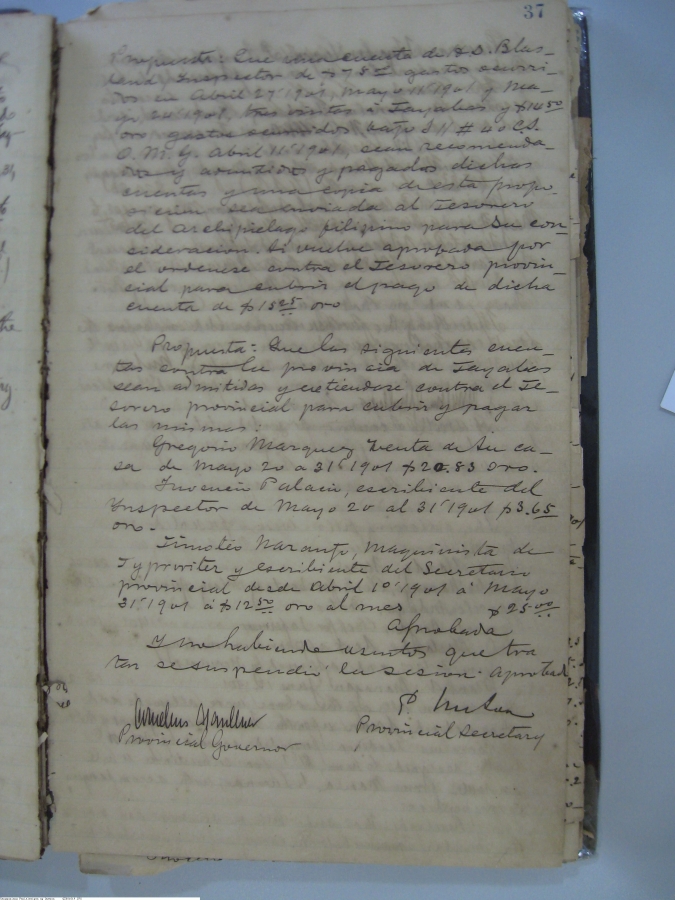 37
Propuesta: Que una cuenta de H.D. Blas-
band, Inspector de $ gastos ocurri-
dos en Abril 27 1901, Mayo 11 1901 y Ma-
yo 24 1901, tres visitas á Tayabas y $14.50
oro gastos ocurridos bajo # 40 C.S.
O. M. G. Abril 11 1901, sean recomenda-
dos y admitidos y pagados dichas
cuentas y una copia de esta propo-
sicion sea enviada al Tesorero
del Archipielago filipino para su con-
sideracion. Si vuelve aprobada por
el ordenese contra el Tesorero provin-
cial para cubrir el pago de dicha
cuenta de $15.25 oro
Propuesta: Que las siguientes cuen-
tas contra la provincia de Tayabas
sean admitidas y contra el Te-
sorero provincial para cubrir y pagar
las mismas:
Gregorio Marquez renta de su ca-
sa de Mayo 20 a 31 1901 $20.83 oro.
Inocencio Palacio, escribiente del
Inspector de Mayo 20 al 31 1901 $3.65
oro.
Timoteo Naranjo, Maquinista de
Typwriter y escribiente del Secretario
provincial desde Abril 1º 1901 á Mayo
31 1901 á $12.50 oro al mes $25.00
Aprobada
Y no habiendo asuntos que tra
tar se suspendió la sesion. Aprobad
Cornelius Gardener
Provincial Governor
Provincial Secretary